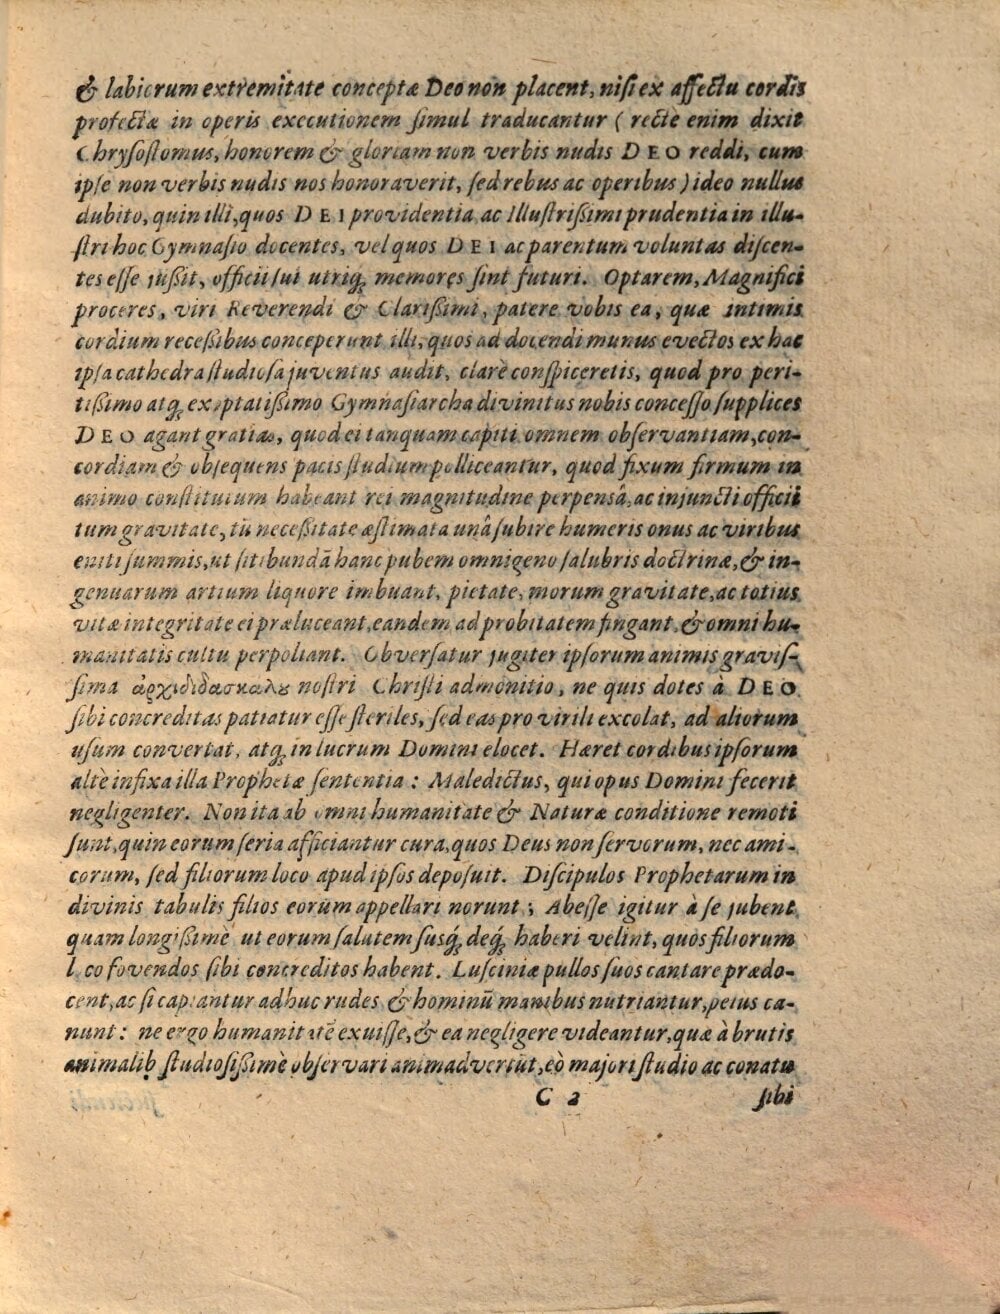 & labiorum extremitate conceptæ Deo non placent, niſi ex affectu cordis
profectæ in operis executionem ſimul traducantur ( rectè enim dixit
Chryſoſtomus, honorem & gloriam non verbis nudis DEO reddi, cum
ipſe non verbis nudis nos honoraverit, ſed rebus ac operibus ) ideo nullus
dubito, quin illi, quos DEI providentia ac Illuſtriſſimi prudentia in illu-
ſtri hoc Gymnaſio docentes, vel quos DEI ac parentum voluntas diſcen-
tes eſſe juſſit, officii ſui utriq; memores ſint futuri. Optarem, Magnifici
proceres, viri Reverendi & Clariſſimi, patere vobis ea, quæ intimis
cordium receſſibus conceperunt illi, quos ad docendi munus evectos ex hac
ipſa cathedra ſtudioſa juventus audit, clarè conſpiceretis, quod pro peri-
tiſſimo atq; exoptatiſſimo Gymnaſiarcha divinitus nobis conceſſo ſupplices
DEO agant gratias, quod ei tanquam capiti omnem obſervantiam, con-
cordiam & obſequens pacis ſtudium polliceantur, quod fixum firmum in
animo conſtitutum habeant rei magnitudine perpenſâ, ac injuncti officii
tum gravitate, tū neceſſitate æſtimata unâ ſubire humeris onus ac viribus
eniti ſummis, ut ſitibundā hanc pubem omnigeno ſalubris doctrinæ, & in-
genuarum artium liquore imbuant, pietate, morum gravitate, ac totius
vitæ integritate ei præluceant, eandem ad probitatem fingant, & omni hu-
manitatis cultu perpoliant. Obverſatur jugiter ipſorum animis graviſ-
ſima ἀρχιδιδασκάλȣ noſtri Chriſti admonitio, ne quis dotes à DEO
ſibi concreditas patiatur eſſe ſteriles, ſed eas pro virili excolat, ad aliorum
uſum convertat, atq; in lucrum Domini elocet. Hæret cordibus ipſorum
altè infixa illa Prophetæ ſententia : Maledictus, qui opus Domini fecerit
negligenter. Non ita ab omni humanitate & Naturæ conditione remoti
ſunt, quin eorum ſeria afficiantur cura, quos Deus non ſervorum, nec ami-
corum, ſed filiorum loco apud ipſos depoſuit. Diſcipulos Prophetarum in
divinis tabulis filios eorum appellari norunt ; Abeſſe igitur à ſe jubent
quam longiſſimè ut eorum ſalutem ſusq; deq; haberi velint, quos filiorum
loco fovendos ſibi concreditos habent. Luſciniæ pullos ſuos cantare prædo-
cent, ac ſi capiantur adhuc rudes & hominū manibus nutriantur, pejus ca-
nunt : ne ergo humanitatē exuiſſe, & ea negligere videantur, quæ à brutis
animalib; ſtudioſiſſimè obſervari animadvertūt, eò majori ſtudio ac conatu
C 2 ſibi